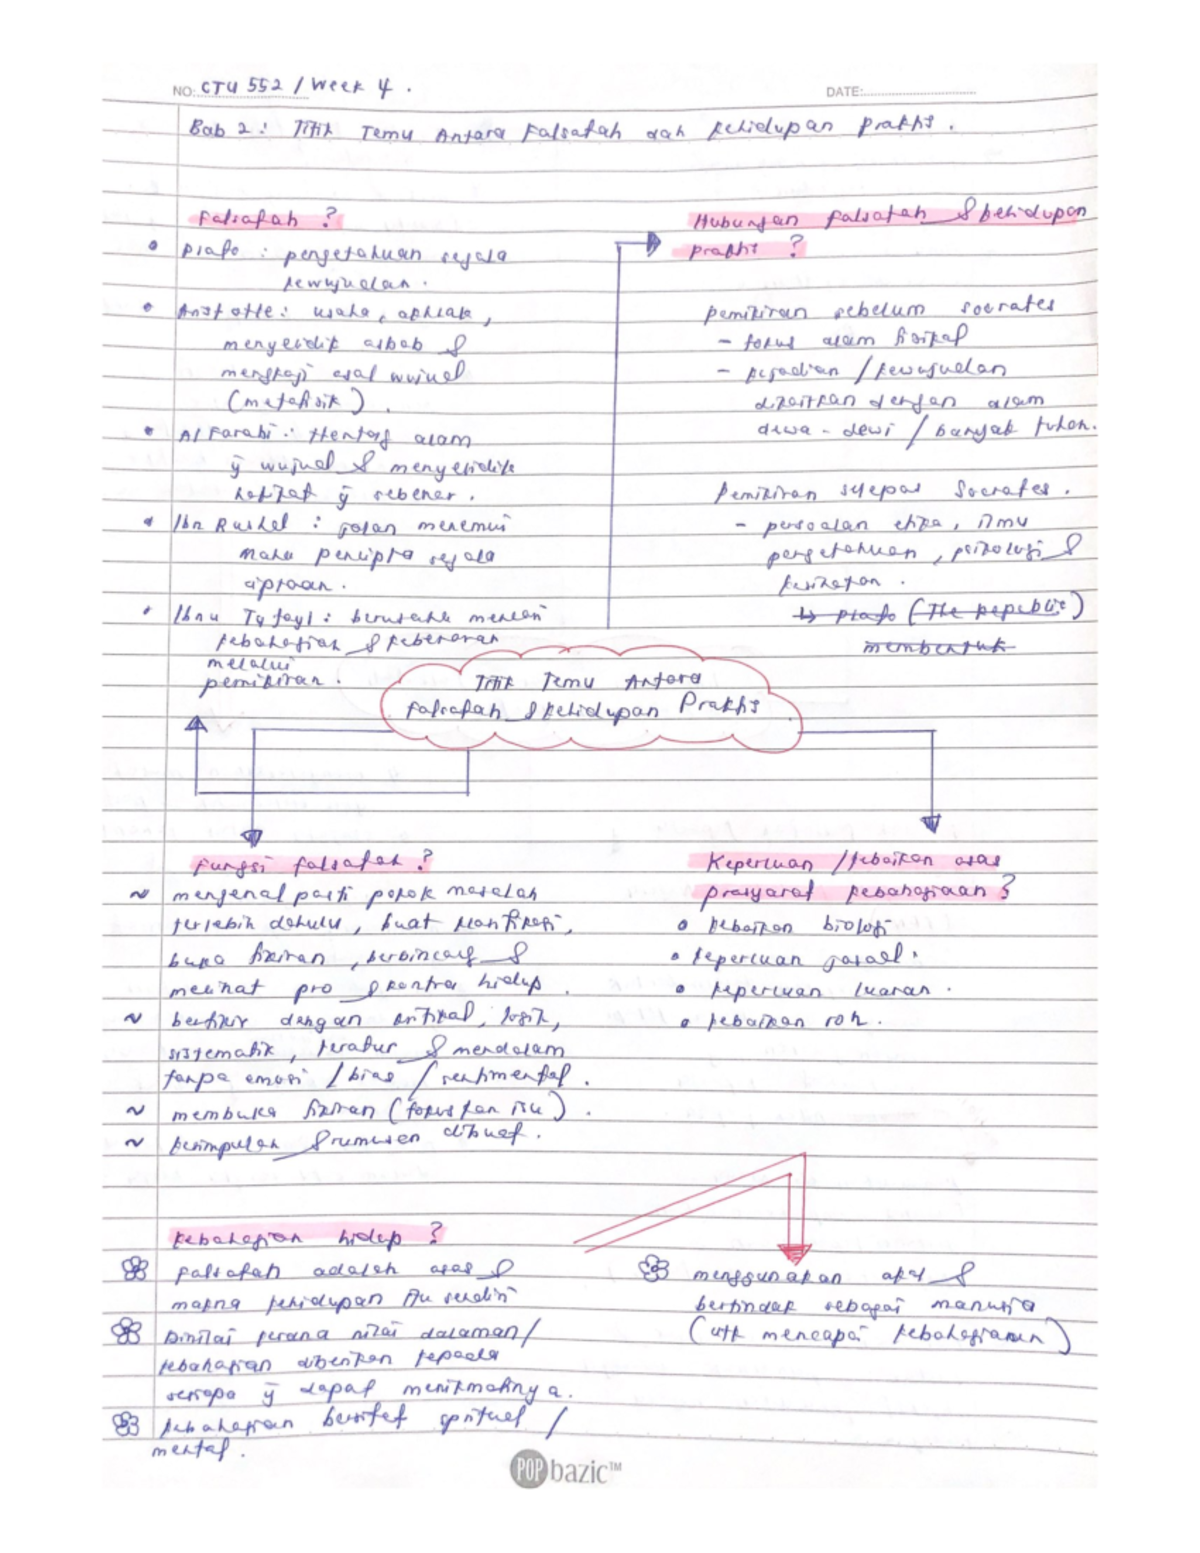 NO: CTU 552 / Week 4 .
DATE:
Bab 2 : Titik Temu Antara Falsafah dah kehidupan praktis .
Falsafah ?
Plato : pengetahuan segala
kewujudan .
Aristotle : usaha, aphiak,
menyelidik asbab &
mengkaji asal wujud
(metafisik) .
Al Farabi : tentang alam
ÿ wujud & menyelidik
hakikat ÿ sebenar .
Ibn Rushd : jalan menemui
Maha pencipta segala
ciptaan .
Ibnu Tufayl : berusaha mencari
kebahagian & kebenaran
melalui
pemikiran .
Hubungan falsafah & kehidupan
praktis ?
pemikiran sebelum socrates
- fokus alam fizikal
- kejadian / kewujudan
dikaitkan dengan alam
dewa - dewi / banyak tuhan.
Pemikiran selepas Socrates .
- persoalan etika, ilmu
pengetahuan, psikologi &
kesihatan .
↳ plato (The Republic)
membentuk
Titik Temu Antara
falsafah & kehidupan Praktis
Fungsi falsafah ?
~ mengenal pasti pokok masalah
terlebih dahulu, buat klarifikasi,
buka fikiran, berbincang &
melihat pro & kontra hidup .
~ berfikir dengan kritikal, logik,
sistematik, teratur & mendalam
tanpa emosi / bias / sentimental .
~ membuka fikiran (fokuskan isu) .
~ kesimpulan & rumusan dibuat .
Keperluan / kebaikan asas
prasyarat kebahagiaan ?
kebaikan biologi
keperluan jasad .
keperluan luaran .
kebaikan roh .
kebahagian hidup ?
falsafah adalah asas &
makna kehidupan itu sendiri
Dinilai kerana nilai dalaman /
kebahagian diberikan kepada
sesiapa ÿ dapat menikmatinya .
kebahagian bersifat spiritual /
mental .
menggunakan akal &
bertindak sebagai manusia
(utk mencapai kebahagiaan)
POP bazic™